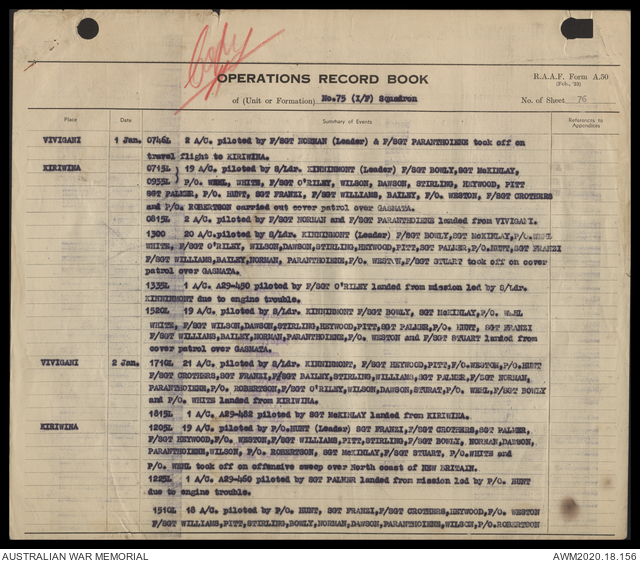 Copy
OPERATIONS RECORD BOOK
R.A.A.F. Form A.50
(Feb., 23)
of (Unit or Formation) No.75 (I/F) Squadron
No. of Sheet 76
Place Date Time Summary of Events References to Appendices
VIVIGANI 1 Jan. 0746L 2 A/C. piloted by F/SGT NORMAN (Leader) & F/SGT PARANTHOIENE took off on
travel flight to KIRIWINA.
KIRIWINA 0715L) 19 A/C. piloted by S/Ldr. KINNINMONT (Leader) F/SGT BOWLY, SGT McKINLAY,
0935L) P/O. WEHL, WHITE, F/SGT O'RILEY, WILSON, DAWSON, STIRLING, HEYWOOD, PITT
SGT PALMER, P/O. HUNT, SGT FRANZI, F/SGT WILLIAMS, BAILEY, F/O. WESTON, F/SGT CROTHERS
and P/O. ROBERTSON carried out cover patrol over GASMATA.
0815L 2 A/C. piloted by F/SGT NORMAN and F/SGT PARANTHOIENE landed from VIVIGANI.
1300 20 A/C. piloted by S/Ldr. KINNINMONT (Leader) F/SGT BOWLY, SGT McKINLAY, P/O. WEHL
WHITE, F/SGT O'RILEY, WILSON,DAWSON,STIRLING,HEYWOOD,PITT,SGT PALMER,P/O.HUNT,SGT FRANZI
F/SGT WILLIAMS,BAILEY,NORMAN, PARANTHOIENE,F/O. WESTON,F/SGT STUART took off on cover
patrol over GASMATA.
1335L 1 A/C. A29-450 piloted by F/SGT O'RILEY landed from mission led by S/Ldr.
KINNINMONT due to engine trouble.
1520L 19 A/C. piloted by S/Ldr. KINNINMONT F/SGT BOWLY, SGT McKINLAY,P/O. WEHL
WHITE, F/SGT WILSON,DAWSON,STIRLING,HEYWOOD,PITT,SGT PALMER,P/O. HUNT, SGT FRANZI
F/SGT WILLIAMS,BAILEY,NORMAN,PARANTHOIENE,F/O. WESTON and F/SGT STUART landed from
cover patrol over GASMATA.
VIVIGANI 2 Jan. 1710L 21 A/C. piloted by S/Ldr. KINNINMONT, F/SGT HEYWOOD,PITT,F/O.WESTON,P/O.HUNT
F/SGT CROTHERS,SGT FRANZI,F/SGT BAILEY,STIRLING,WILLIAMS,SGT PALMER,F/SGT NORMAN,
PARANTHOIENE,P/O. ROBERTSON,F/SGT O'RILEY,WILSON,DAWSON,STURAT,P/O. WEHL,F/SGT BOWLY
and P/O. WHITE landed from KIRIWINA.
1815L 1 A/C. A29-482 piloted by SGT McKINLAY landed from KIRIWINA.
KIRIWINA 1205L 19 A/C. piloted by P/O.HUNT (Leader) SGT FRANZI,F/SGT CROTHERS,SGT PALMER,
F/SGT HEYWOOD,F/O. WESTON,F/SGT WILLIAMS,PITT,STIRLING,F/SGT BOWLY, NORMAN,DAWSON,
PARANTHOIENE,WILSON, P/O. ROBERTSON, SGT McKINLAY,F/SGT STUART, P/O.WHITE and
P/O. WEHL took off on offensive sweep over North coast of NEW BRITAIN.
1225L 1 A/C. A29-460 piloted by SGT PALMER landed from mission led by P/O. HUNT
due to engine trouble.
1510L 18 A/C. piloted by P/O. HUNT, SGT FRANZI,F/SGT CROTHERS,HEYWOOD,F/O. WESTON
F/SGT WILLIAMS,PITT,STIRLING,BOWLY,NORMAN,DAWSON,PARANTHOIENE,WILSON,P/O.ROBERTSON
AUSTRALIAN WAR MEMORIAL
AWM2020.18.156